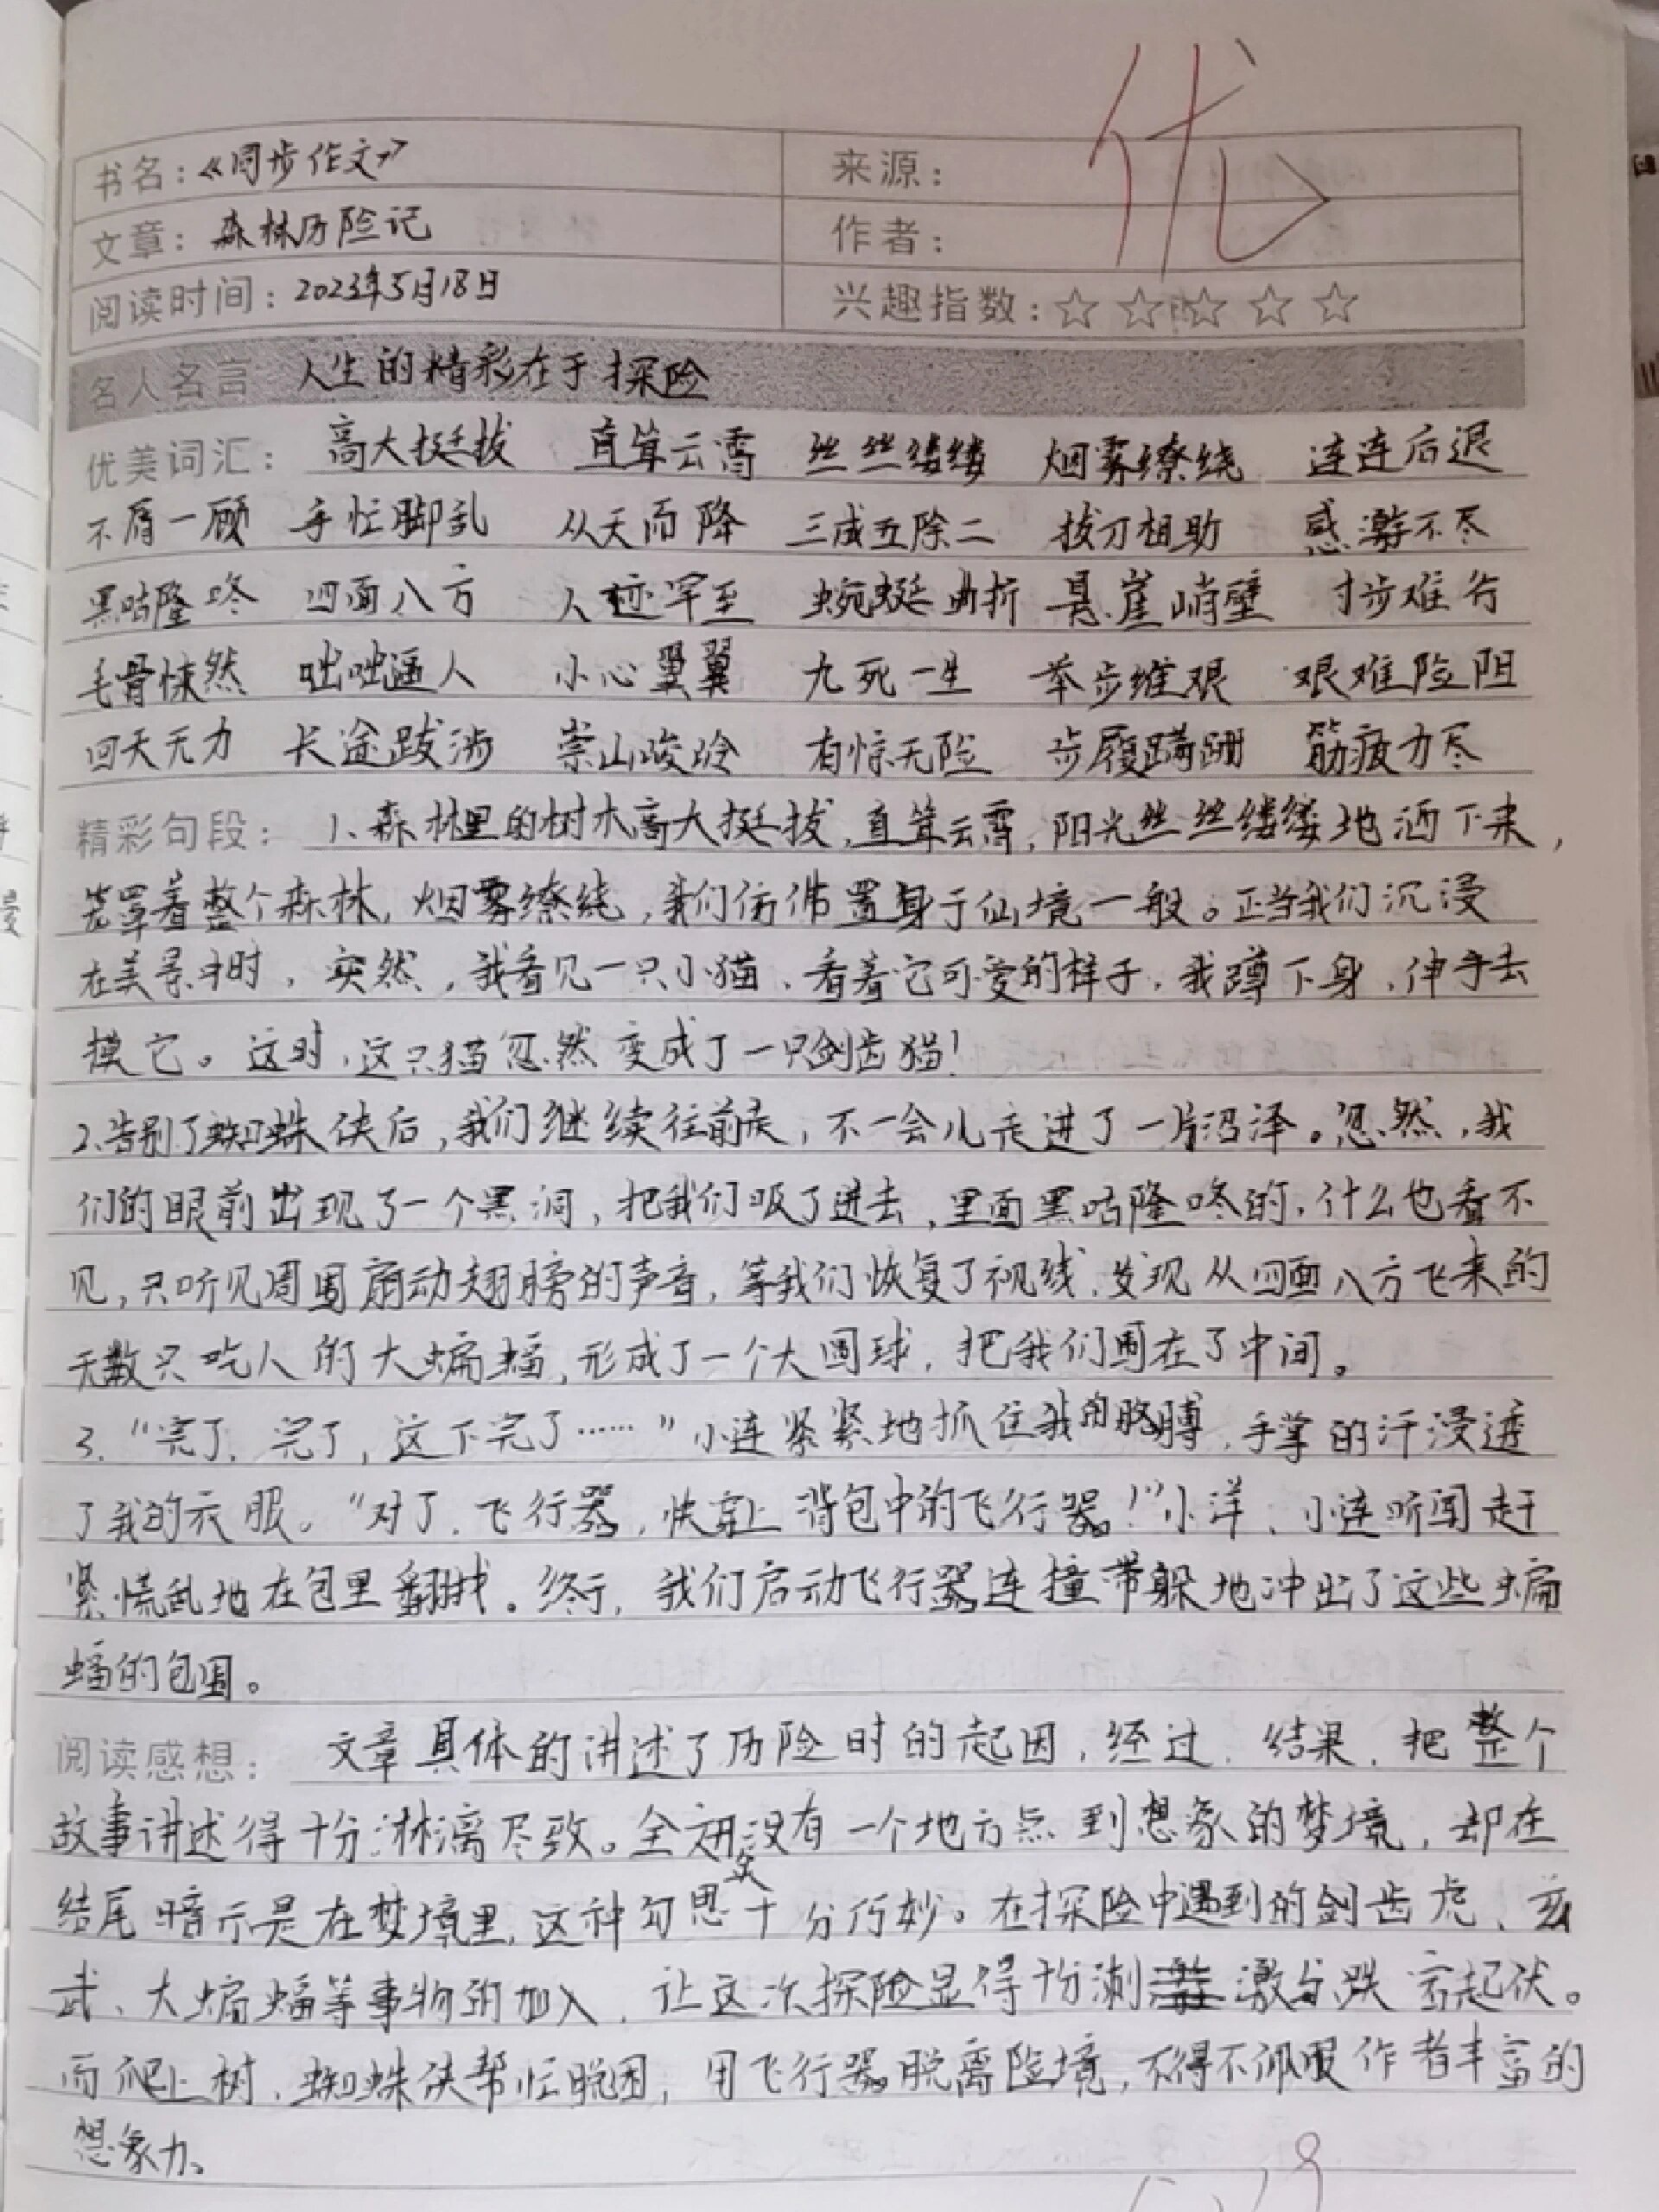 优
书名：《同步作文》 来源：
文章：森林历险记 作者：
阅读时间：2023年5月18日 兴趣指数：☆ ☆ ☆ ☆ ☆
名人名言 人生的精彩在于探险
优美词汇： 高大挺拔 直耸云霄 丝丝缕缕 烟雾缭绕 连连后退
不屑一顾 手忙脚乱 从天而降 三成五除二 拔刀相助 感激不尽
黑咕隆咚 四面八方 人迹罕至 蜿蜒曲折 悬崖峭壁 寸步难行
毛骨悚然 咄咄逼人 小心翼翼 九死一生 举步维艰 艰难险阻
回天无力 长途跋涉 崇山峻岭 有惊无险 步履蹒跚 筋疲力尽
精彩句段： 1、森林里的树木高大挺拔，直耸云霄，阳光丝丝缕缕地洒下来，
笼罩着整个森林，烟雾缭绕，我们仿佛置身于仙境一般。正当我们沉浸
在美景时，突然，我看见一只小猫、看着它可爱的样子，我蹲下身，伸手去
摸它。这时，这只猫忽然变成了一只剑齿猫！
2、告别了蜘蛛侠后，我们继续往前走，不一会儿走进了一片沼泽。忽然，我
们的眼前出现了一个黑洞，把我们吸了进去，里面黑咕隆咚的，什么也看不
见，只听见周围扇动翅膀的声音，等我们恢复了视线，发现从四面八方飞来的
无数只吃人的大蝙蝠，形成了一个大圆球，把我们围在了中间。
3、“完了，完了，这下完了……”小连紧紧地抓住我的胳膊，手掌的汗浸透
了我的衣服。“对了，飞行器，快穿上背包中的飞行器！”小洋、小连听闻赶
紧慌乱地在包里翻找。终于，我们启动飞行器连撞带躲地冲出了这些蝙
蝠的包围。
阅读感想： 文章具体的讲述了历险时的起因，经过，结果，把整个
故事讲述得十分淋漓尽致。全文没有一个地方点到想象的梦境，却在
结尾暗示是在梦境里，这种勾思十分巧妙。在探险中遇到的剑齿虎、玄
武、大蝙蝠等事物的加入，让这次探险显得十分刺激与跌宕起伏。
而爬上树，蜘蛛侠帮忙脱困，用飞行器脱离险境，不得不佩服作者丰富的
想象力。